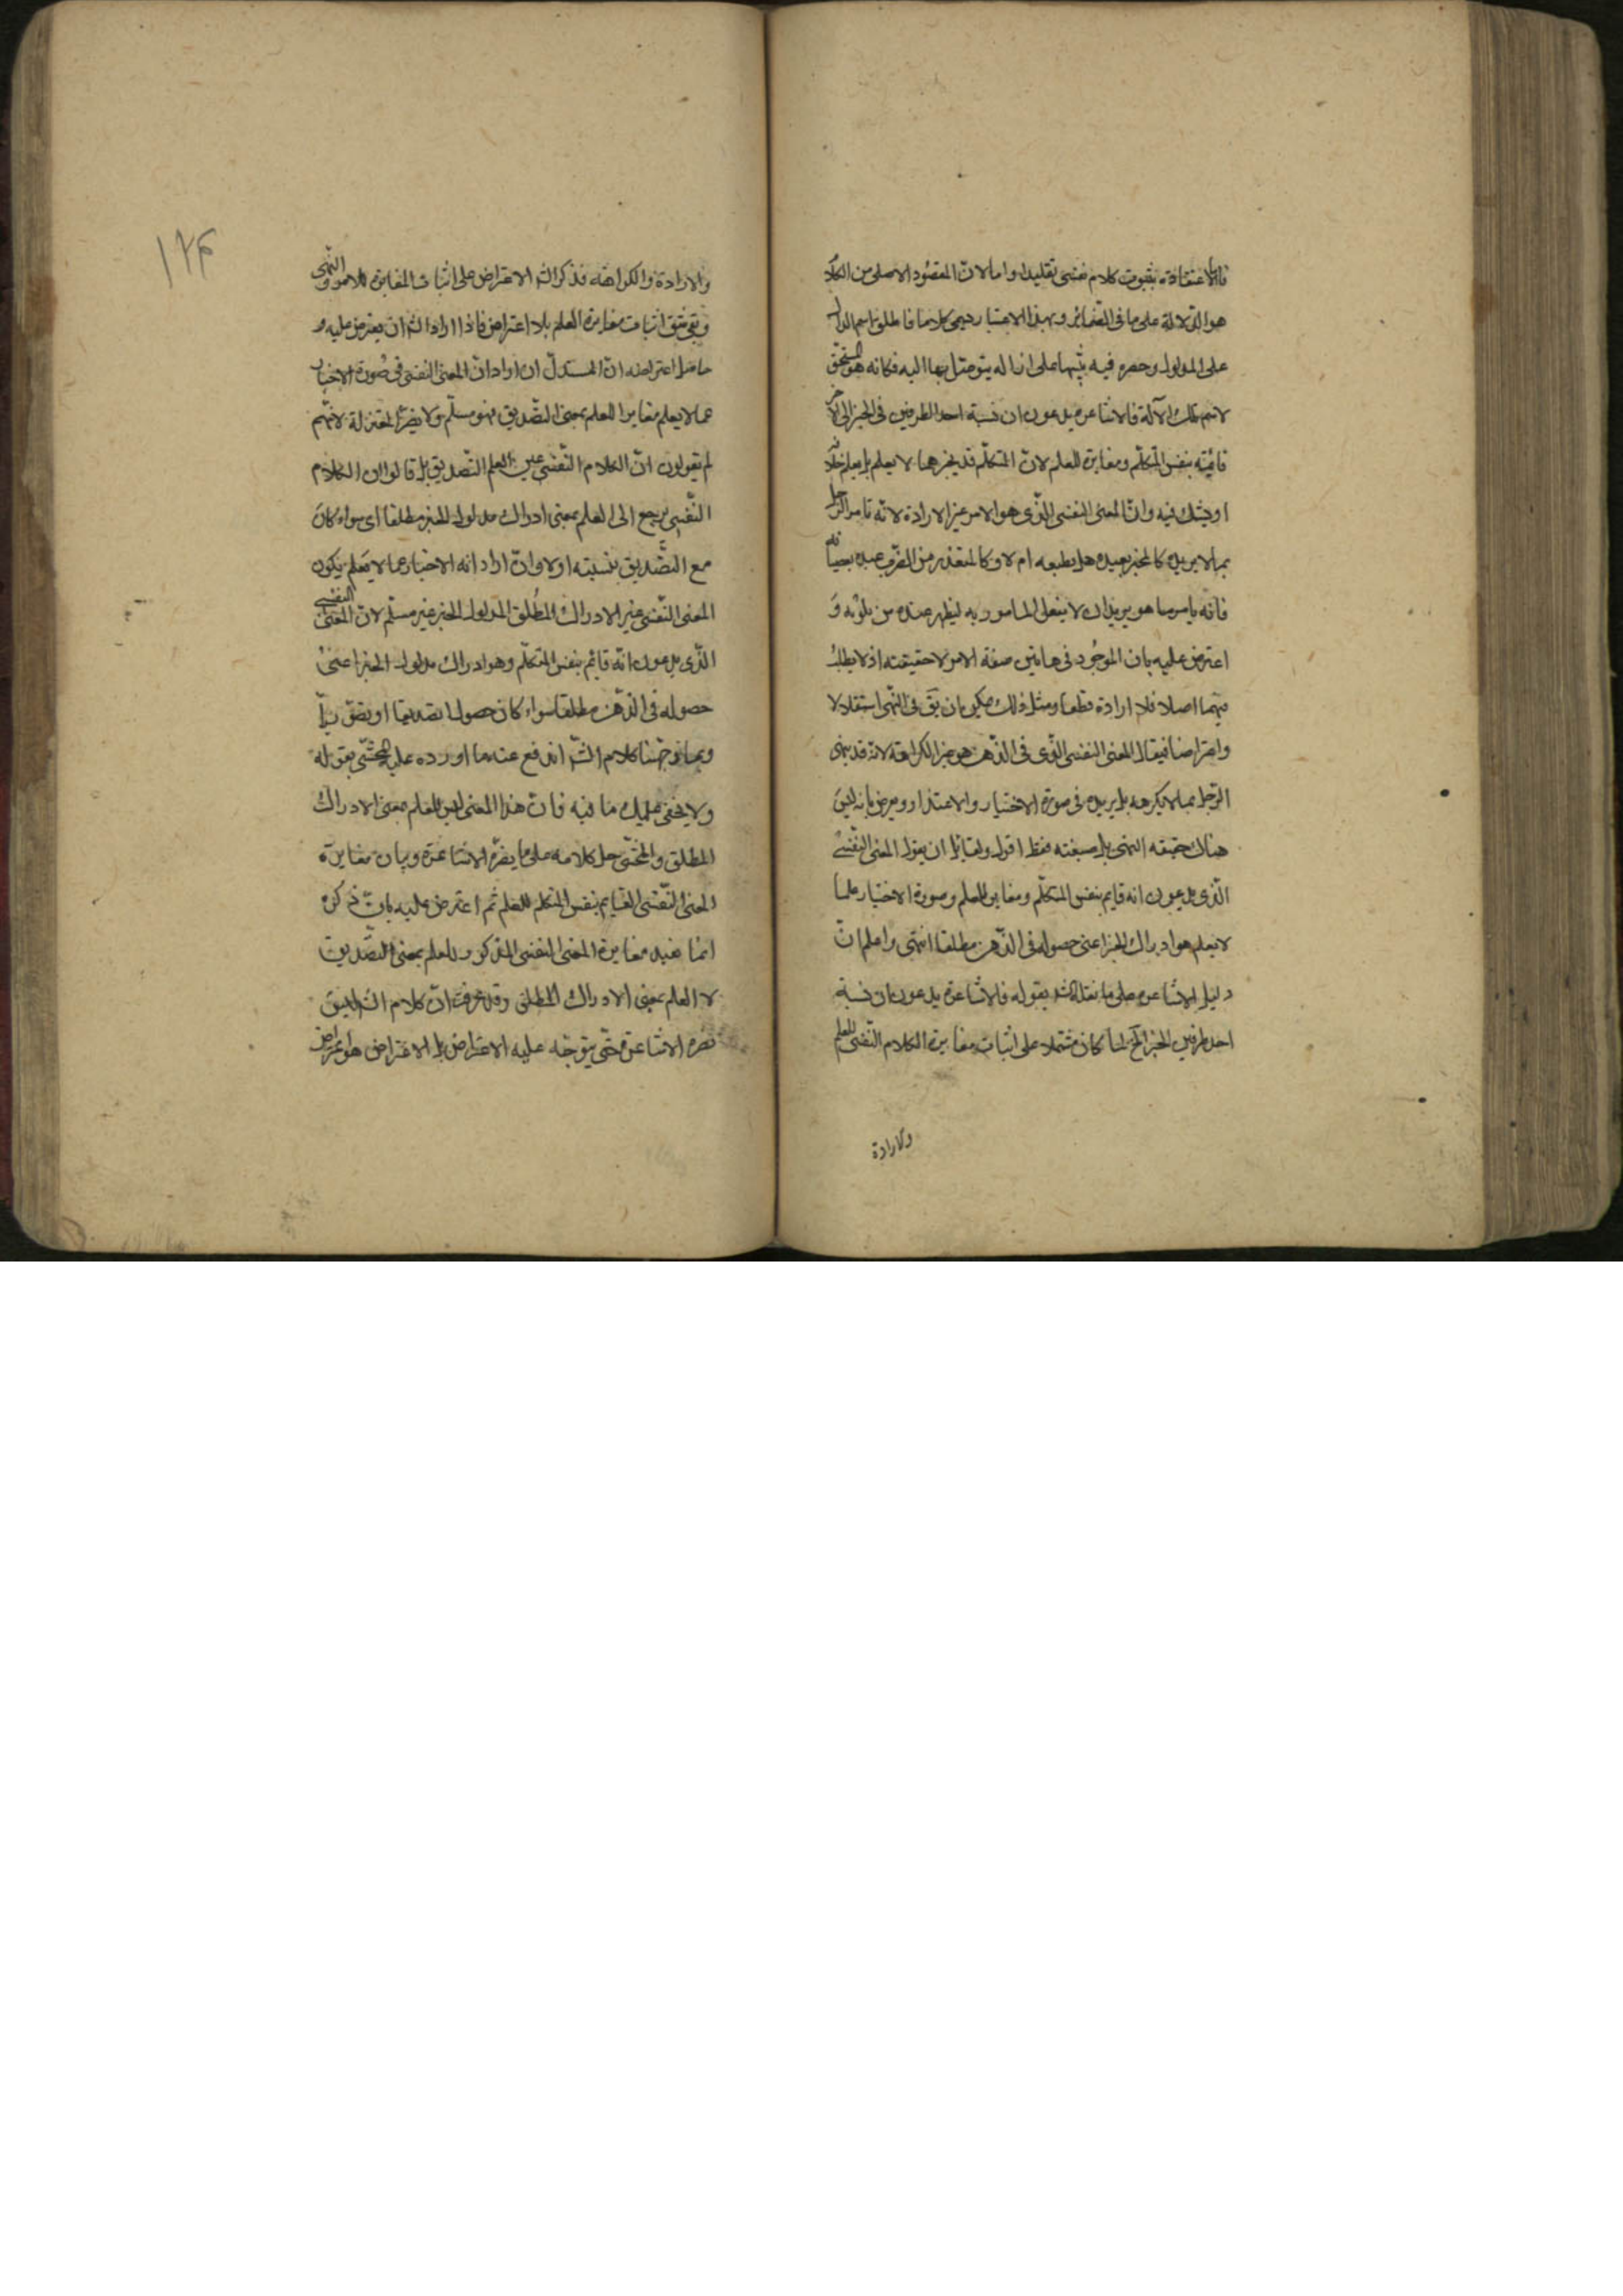 فاما لاعتقاده بثبوت كلام نفسى تقليدا واما لان المقصود الاصلى من الكلام
هو الدلالة على ما فى الضمائر وبهذا الاعتبار يسمى كلاما فاطلق اسم الدال
على المدلول وحصره فيه تنبيها على انه آلة يتوصل بها اليه فكانه هو المستحق
لاسم تلك الآلة فالاشاعرة يدعون ان نسبة احد الطرفين فى الخبر الى الآخر
قائمة بنفس المتكلم ومغايرة للعلم لان المتكلم قد يخبر عما لا يعلم بل يعلم خلافه
او يشك فيه وان المعنى النفسى الذى هو الامر غير الارادة لانه يأمر الرجل
بما لا يريده كالمختبر لعبده هل يطيعه ام لا وكالمعتذر من ضرب عبده بعصيانه
فانه يأمره وهو يريد ان لا يفعل المأمور به ليظهر عذره من يلومه و
اعترض عليه بان الموجود فى هاتين صيغة الامر لا حقيقته اذ لا يطلب
فيهما اصلا فلا ارادة قطعا ومثل ذلك يمكن ان يق فى النهى استدلالا
واعتراضا فيقال المعنى النفسى الذى فى الذهن هو غير الكراهة لانه قد ينهى
الرجل عما لا يكرهه بل يريده فى صورة الاختبار والاعتذار ويعترض بانه ليس
هناك حقيقة النهى بل صيغته فقط اقول ولقائل ان يقول المعنى النفسى
الذى يدعون انه قايم بنفس المتكلم ومغاير للعلم وصورة الاخبار عما
لا يعلم هو ادراك الخبر اعنى حصوله فى الذهن مطلقا انتهى واعلم ان
دليل الاشاعرة على ما نقله الش بقوله فالاشاعرة يدعون ان نسبة
احد طرفين الخبر الخ لما كان مشتملا على اثبات مغايرة الكلام النفسى للعلم
والارادة
۱۲۴
والارادة والكراهة فذكر الش الاعتراض على اثبات المغايرة للامر والنهى
وبقى شق اثبات مغايرة العلم بلا اعتراض فاذا اراد الش ان يعترض عليه و
حاصل اعتراضه ان المستدل ان اراد ان المعنى النفسى فى صورة الاخبار
عما لا يعلم مغاير للعلم بمعنى التصديق فهو مسلم ولا يضر المعتزلة لانهم
لم يقولون ان الكلام النفسى عين العلم التصديق بل قالوا ان الكلام
النفسى يرجع الى العلم بمعنى ادراك مدلول الخبر مطلقا اى سواء كان
مع التصديق بنسبته او لا وان اراد انه الاخبار عما لا يعلم يكون
المعنى النفسى غير الادراك المطلق المدلول الخبر غير مسلم لان المعنى النفسى
الذى يدعون انه قائم بنفس المتكلم وهو ادراك مدلول الخبر اعنى
حصوله فى الذهن مطلقا سواء كان حصولا تصديقيا او تصوريا
وبما وجهنا كلام الش اندفع عنه ما اورده عليه المحشى بقوله
ولا يخفى عليك ما فيه فان هذا المعنى ليس للعلم بمعنى الادراك
المطلق والمحشى حمل كلامه على ما يقره الاشاعرة وبيان مغايرة
المعنى النفسى القايم بنفس المتكلم للعلم ثم اعترض عليه بان ذكره
انما يفيد مغايرة المعنى النفسى المذكور للعلم بمعنى التصديق
لا العلم بمعنى الادراك المطلق وقد عرفت ان كلام الش ليس
الاشاعرة حتى يتوجه عليه الاعتراض بل الاعتراض هو